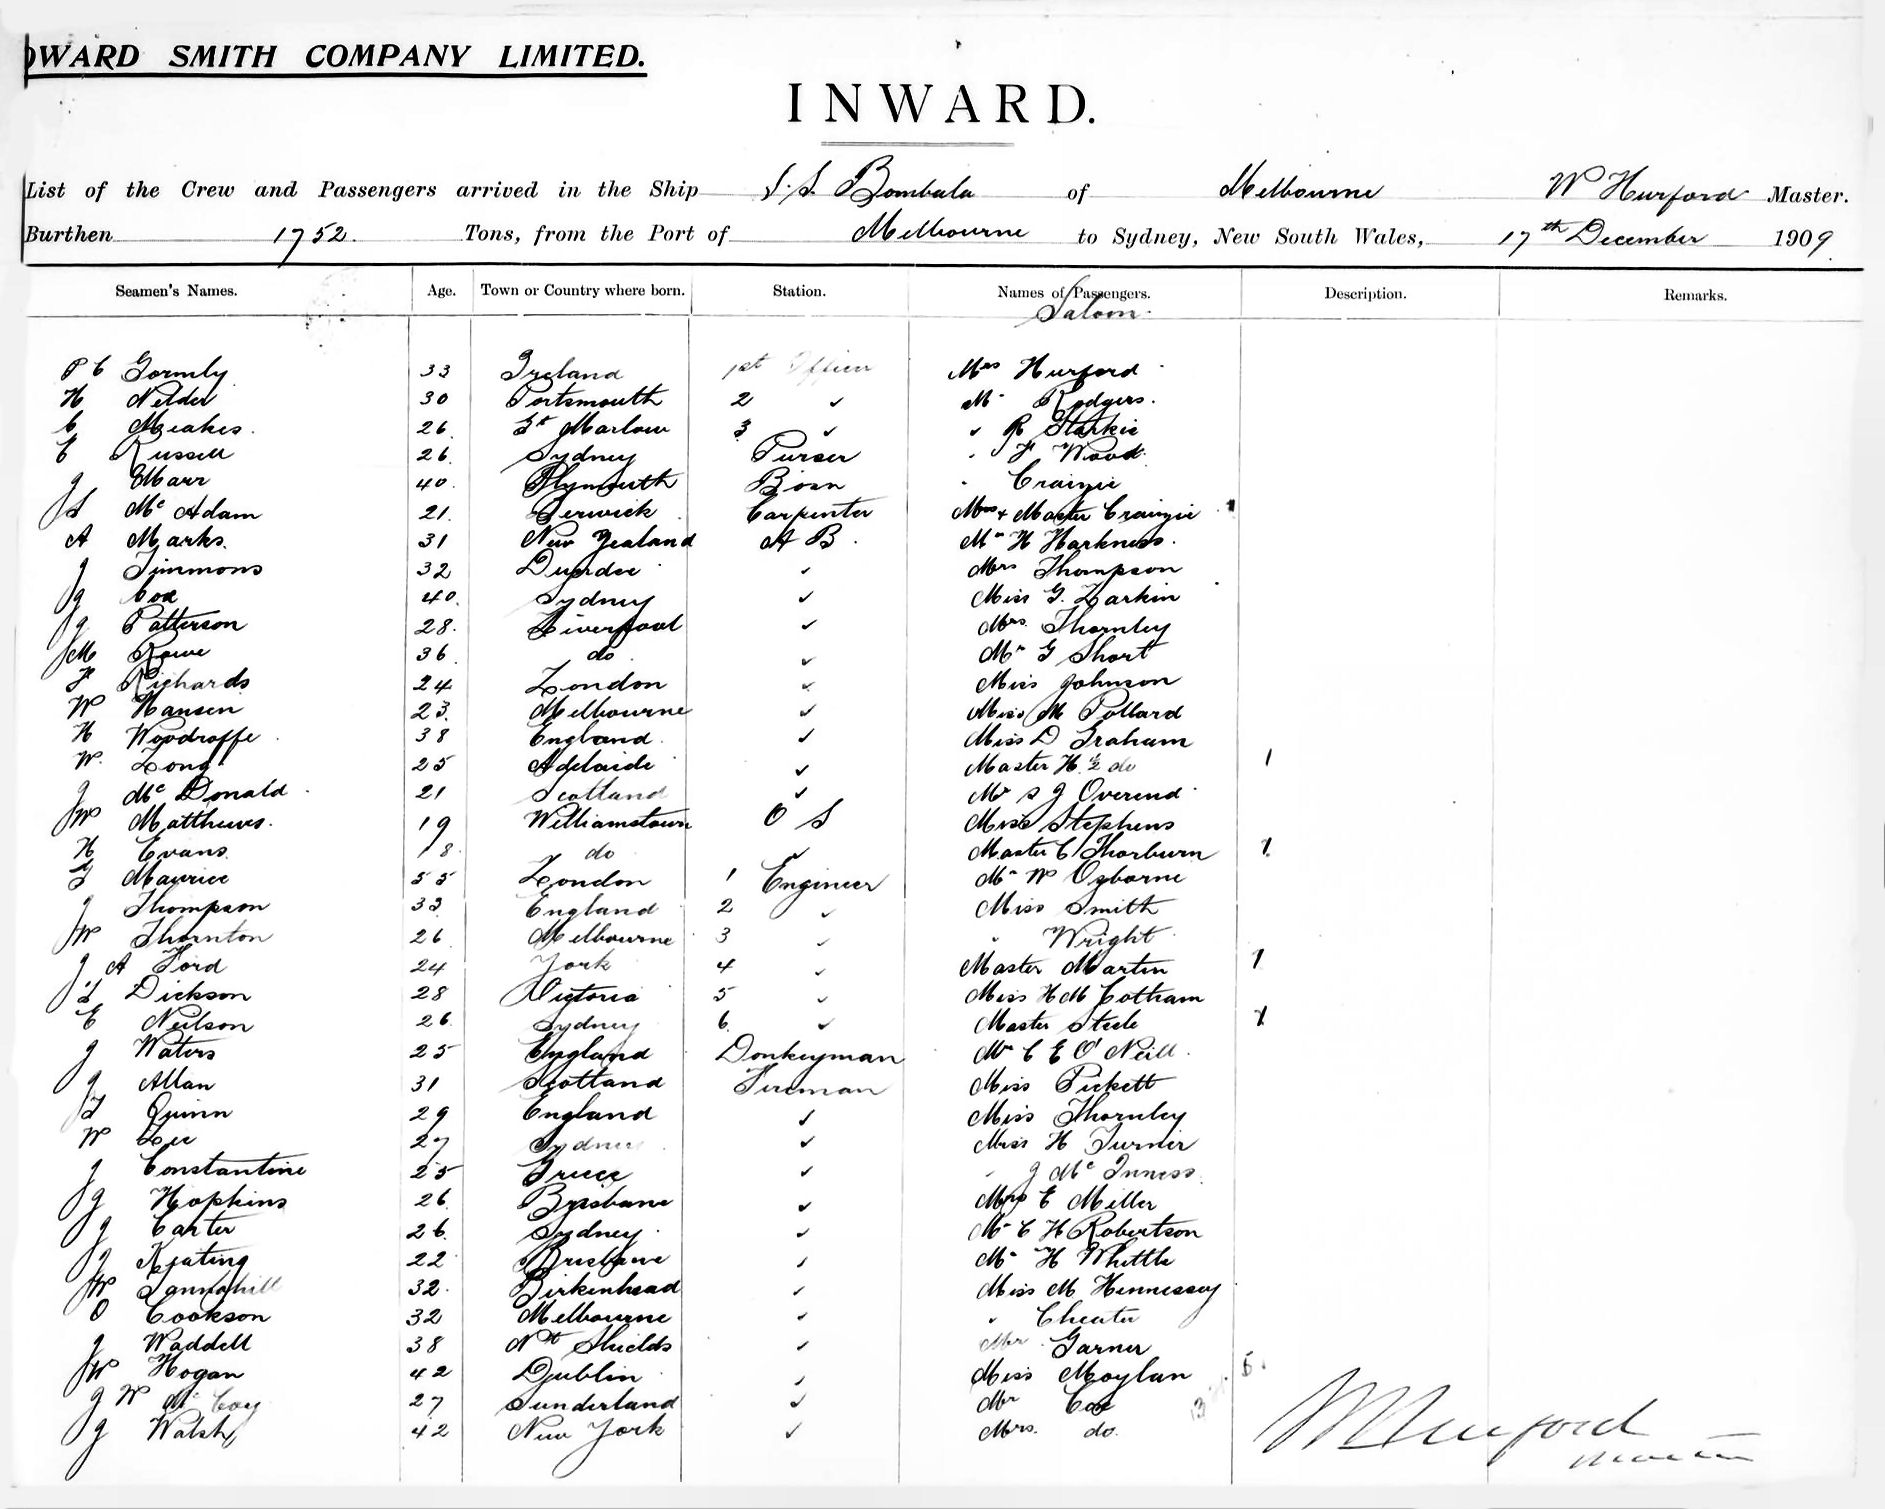 OWARD SMITH COMPANY LIMITED.
INWARD.
List of the Crew and Passengers arrived in the Ship S.S. Bombala of Melbourne W Hurford Master.
Burthen 1752 Tons, from the Port of Melbourne to Sydney, New South Wales, 17th December 1909
Seamen's Names. Age. Town or Country where born. Station. Names of Passengers. Description. Remarks.
Saloon
P C Gormly 33 Ireland 1st Officer Mrs Hurford
H Nelder 30 Portsmouth 2 ✓ Mr Rodgers
C Meakes 26 Gt Marlow 3 ✓ ✓ R Starkie
E Russell 26 Sydney Purser F Wood
J Marr 40 Plymouth Bosn Craizie
J S McAdam 21 Berwick Carpenter Mrs + Master Craizie 1
A Marks 31 New Zealand A B. Mr H Harkness
J Timmons 32 Dundee ✓ Mrs Thompson
J Cox 40 Sydney ✓ Miss G. Larkin
J Patterson 28 Liverpool ✓ Mrs Thornley
M Rowe 36 do ✓ Mr G Short
F Richards 24 London ✓ Miss Johnson
W Hansen 23 Melbourne ✓ Miss M Pollard
H Woodroffe 38 England ✓ Miss D Graham
W. Long 25 Adelaide ✓ Master H. do 1
J McDonald 21 Scotland ✓ Mr S J Overend
W Matthews 19 Williamstown O S Miss Stephens
H Evans 18 do ✓ Master C Thorburn 1
T Maurice 55 London 1 Engineer Mr W Osborne
J Thompson 33 England 2 ✓ Miss Smith
W Thornton 26 Melbourne 3 ✓ " Wright
J A Ford 24 York 4 ✓ Master Martin 1
J L Dickson 28 Victoria 5 ✓ Miss H M Cotham
E Neilson 26 Sydney 6 ✓ Master Steele 1
J Waters 25 England Donkeyman Mr C E O'Neill
J Allan 31 Scotland Fireman Miss Pickett
T Quinn 29 England ✓ Miss Thornley
W Lee 27 Sydney ✓ Miss H Turner
J Constantine 25 Greece ✓ " J McInness
J Hopkins 26 Brisbane ✓ Mrs E Miller
J Carter 26 Sydney ✓ Mr C H Robertson
J Keating 22 Brisbane ✓ Mr H Whittle
W Tannahill 32 Birkenhead ✓ Miss M Hennessey
O Cookson 32 Melbourne ✓ " Cheater
J Waddell 38 Nth Shields ✓ Mr Garner
W Hogan 42 Dublin ✓ Miss Moylan
J W McCoy 27 Sunderland ✓ Mr Cox
J Walsh 42 New York ✓ Mrs. do.
W Hurford
Master